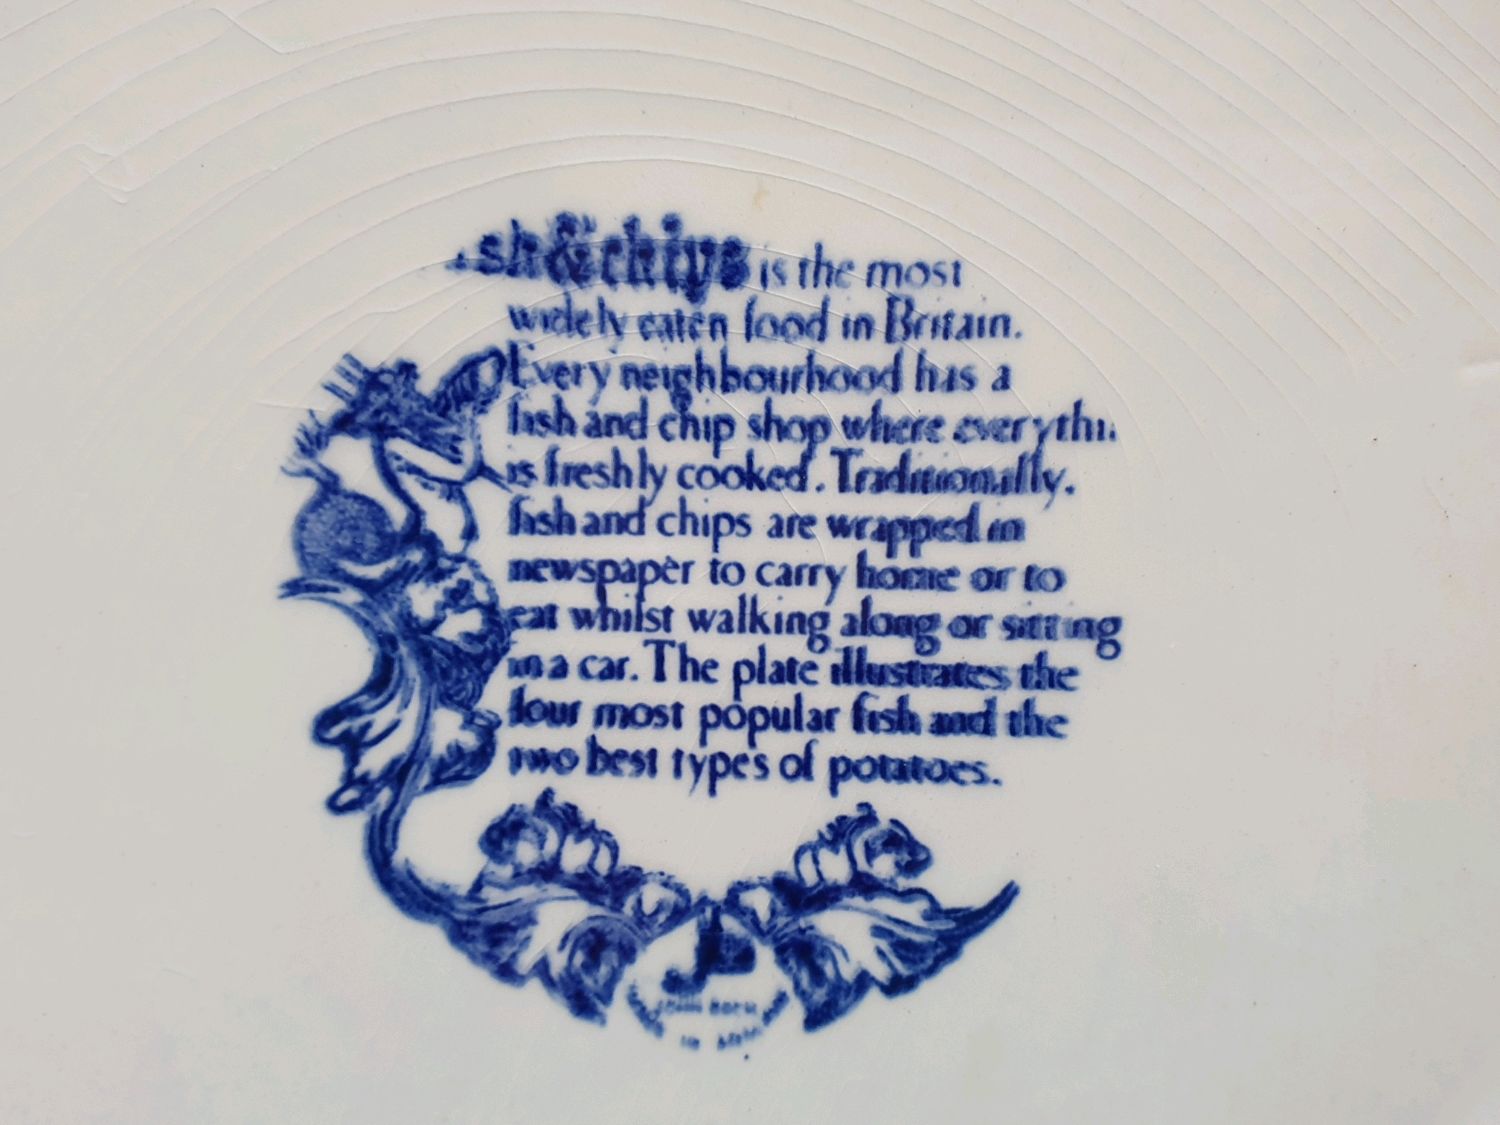 sh & chips is the most
widely eaten food in Britain.
Every neighbourhood has a
fish and chip shop where everythi
is freshly cooked. Traditionally,
fish and chips are wrapped in
newspaper to carry home or to
eat whilst walking along or sitting
in a car. The plate illustrates the
four most popular fish and the
two best types of potatoes.